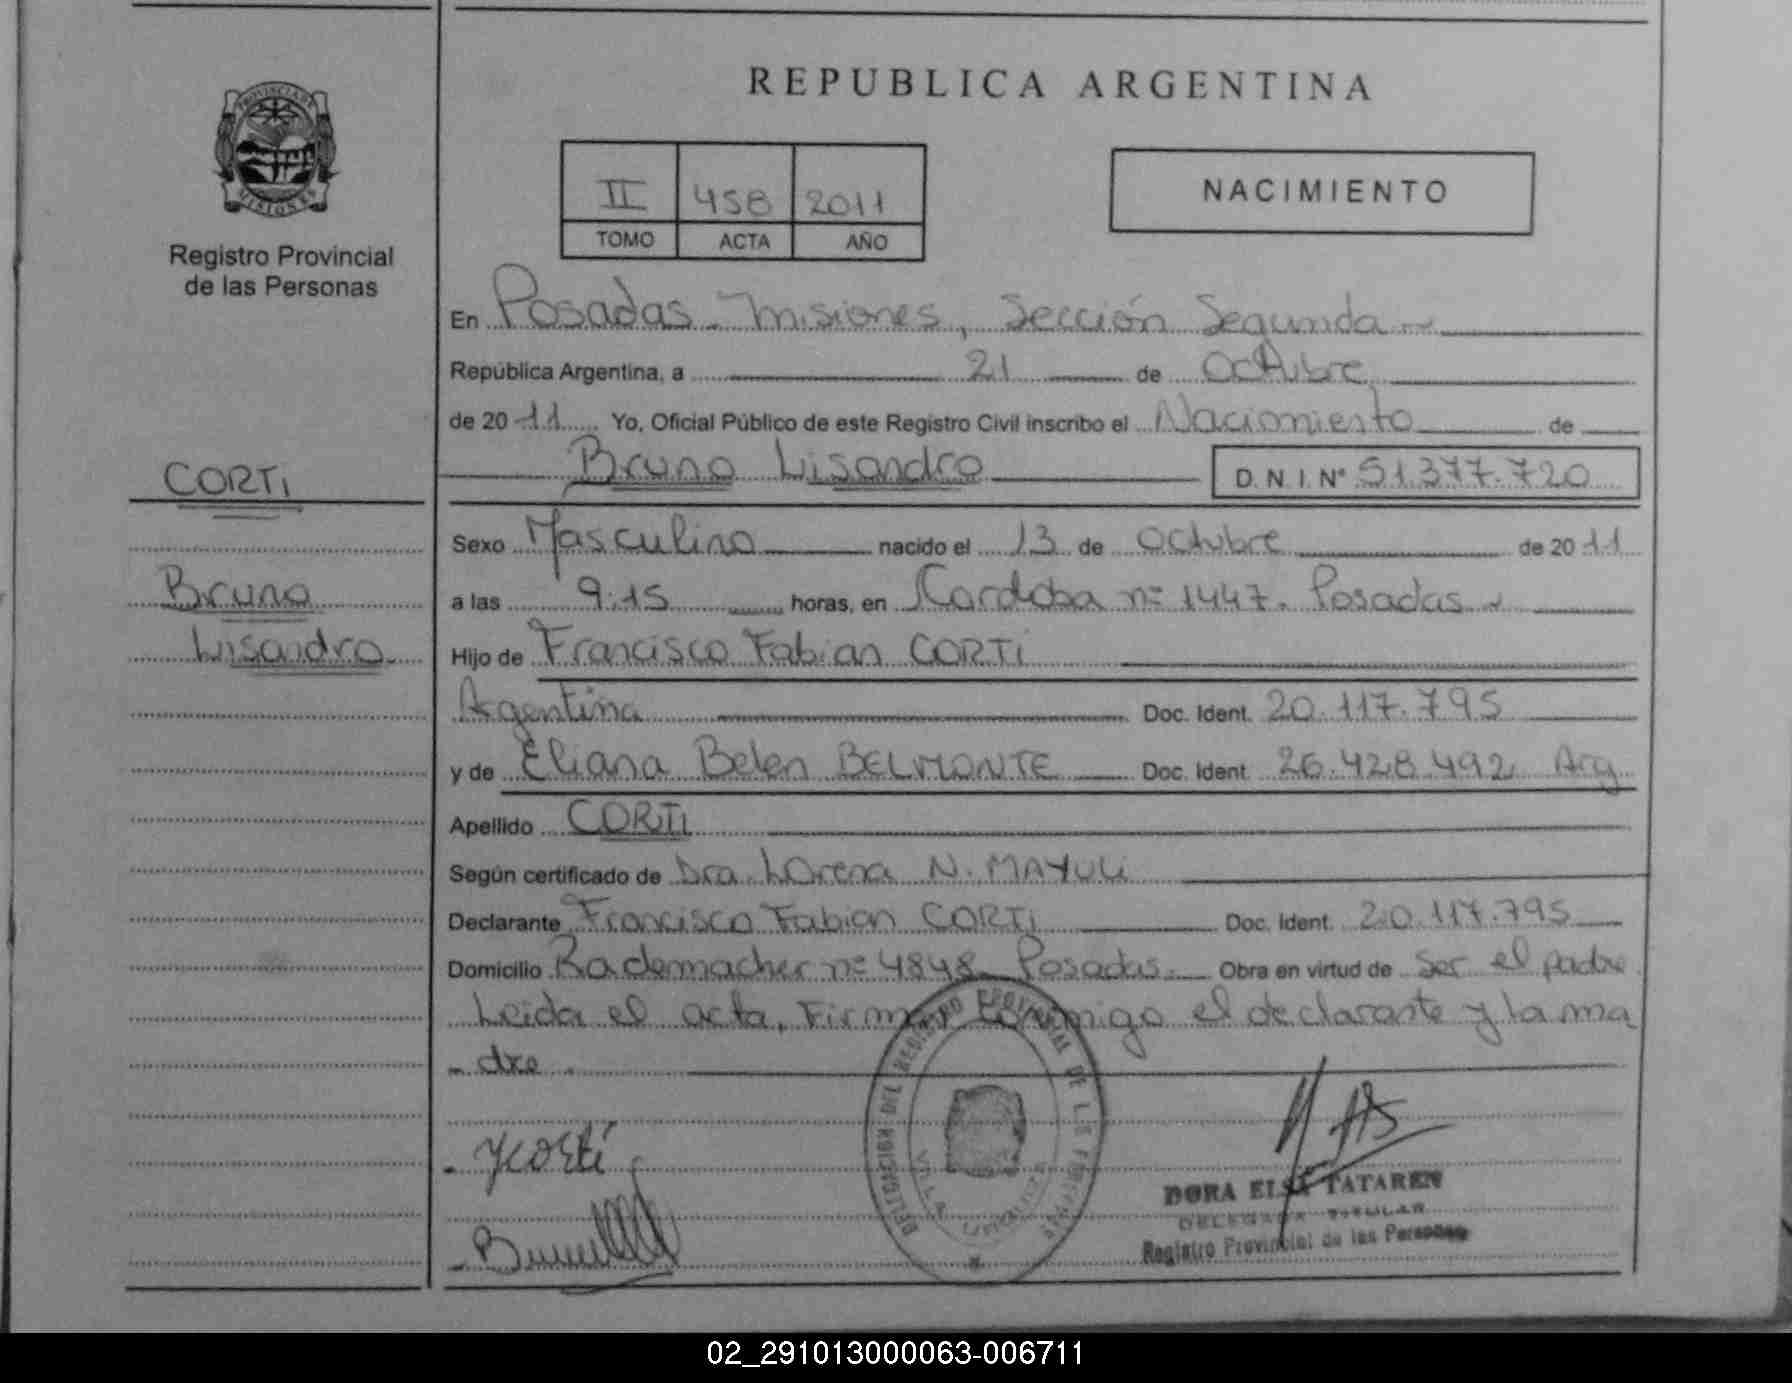 REPUBLICA ARGENTINA
PROVINCIA DE
MISIONES
Registro Provincial
de las Personas
II 458 2011
TOMO ACTA AÑO
NACIMIENTO
En Posadas - Misiones, Sección Segunda
República Argentina, a 21 de Octubre
de 2011 Yo, Oficial Público de este Registro Civil inscribo el Nacimiento de
Bruno Lisandro D.N.I. Nº 51.377.720
CORTI
Bruno
Lisandro
Sexo Masculino nacido el 13 de Octubre de 2011
a las 9.15 horas, en Cordoba nº 1447. Posadas
Hijo de Francisco Fabian CORTI
Argentina Doc. Ident. 20.117.795
y de Eliana Belen BELMONTE Doc. Ident 26.428.492 Arg
Apellido CORTI
Según certificado de Dra. Lorena N. MAYULI
Declarante Francisco Fabian CORTI Doc. Ident. 20.117.795
Domicilio Rademacher nº 4848 Posadas. Obra en virtud de Ser el padre
Leida el acta, Firman conmigo el declarante y la ma
- dre.
DELEGACION DEL REGISTRO PROVINCIAL DE LAS PERSONAS
VILLA
Fcorti
DORA ELSA TATAREN
DELEGADA TITULAR
Registro Provincial de las Personas
02_291013000063-006711